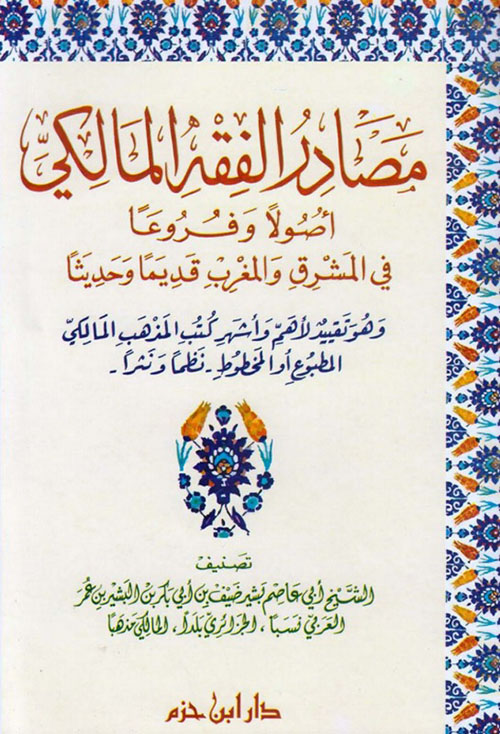 مَصَادِرُ الفِقْهِ المَالِكِيِّ
أُصُولاً وَفُرُوعًا
في المَشْرِقِ وَالمَغْرِبِ قَدِيمًا وَحَدِيثًا
وَهُوَ تَقْييدٌ لأَهَمِّ وَأَشهَرِ كُتُبِ المَذْهَبِ المَالِكِيِّ
المَطبُوعِ أَو المَخْطُوطِ - نَظْمًا وَنَثرًا -
تصنيف
الشَّيْخِ أَبِي عَاصِم بَشِير ضَيْف بِن أَبِي بَكْر بن البَشِير بن عُمَر
العَرَبِي نَسَبًا ، الجَزَائِرِي بَلَدًا ، المَالِكِي مَذهَبًا
دار ابن حزم